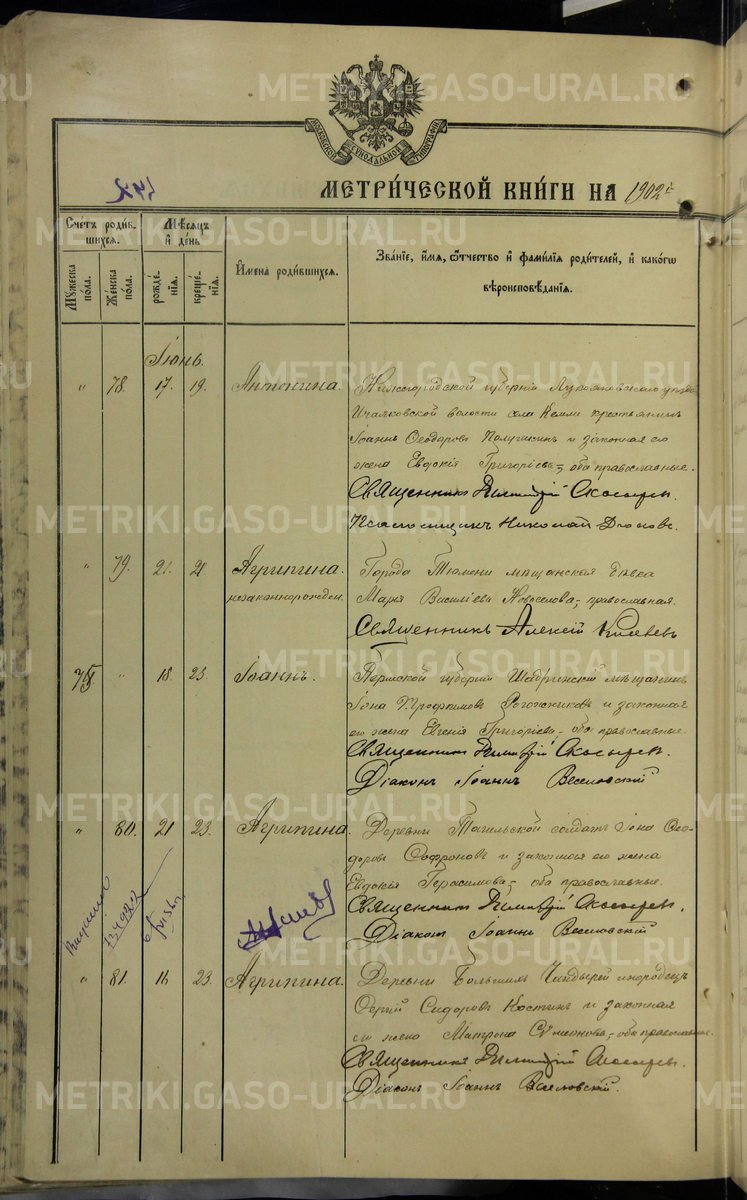 METRIKI.GASO-URAL.RU
МОСКОВСКОЙ СѴНОДАЛЬНОЙ ТИПОГРАФІИ
МЕТРИ́ЧЕСКОЙ КНИ́ГИ НА 1902
Сче́тъ роди́вшихся.
Му́жеска по́ла.
Же́нска по́ла.
Мѣ́сяцъ и҆ де́нь
рожде́нія.
креще́нія.
И҆мена̀ роди́вшихся.
Зва́ніе, и҆́мя, ѻ҆́тчество и҆ фами́лія роди́телей, и҆ како́гѡ
вѣроисповѣ́данія.
Іюнь.
" 78. 17. 19. Антонина. Нижегородской губерніи Лукояновскаго уѣзда
Ичалковской волости села Кемли крестьянинъ
Іоаннъ Ѳеодоровъ Полушкинъ и законная его
жена Евдокія Григоріева, оба православные.
Священникъ Димитрій Скосыревъ.
Псаломщикъ Николай
METRIKI.GASO-URAL.RU
" 79. 21. 21 Агрипина. Города Тюмени мѣщанская дѣвка
незаконнорожден. Марія Василіева Новоселова, православная.
Священникъ Алексій
75 " 18. 23. Іоаннъ. Пермской губерніи Шадринскій мѣщанинъ
Іона Трофимовъ Рогожниковъ и законная
его жена Евгенія Григоріева, оба православные.
Священникъ Димитрій Скосыревъ.
Діаконъ Іоаннъ Веселовскій
METRIKI.GASO-URAL.RU
" 80. 21 23. Агрипина. Деревни Тагильской солдатъ Іона Ѳео-
доровъ Софроновъ и законная его жена
Евдокія Герасимова, оба православные.
Священникъ Димитрій Скосыревъ.
Діаконъ Іоаннъ Веселовскій
" 81. 16 23. Агрипина. Деревни Большихъ инородецъ
Сергій Сидоровъ Костинъ и законная
его жена Матрона Симеонова, оба православные.
Священникъ Димитрій Скосыревъ.
Діаконъ Іоаннъ Веселовскій.
METRIKI.GASO-URAL.RU